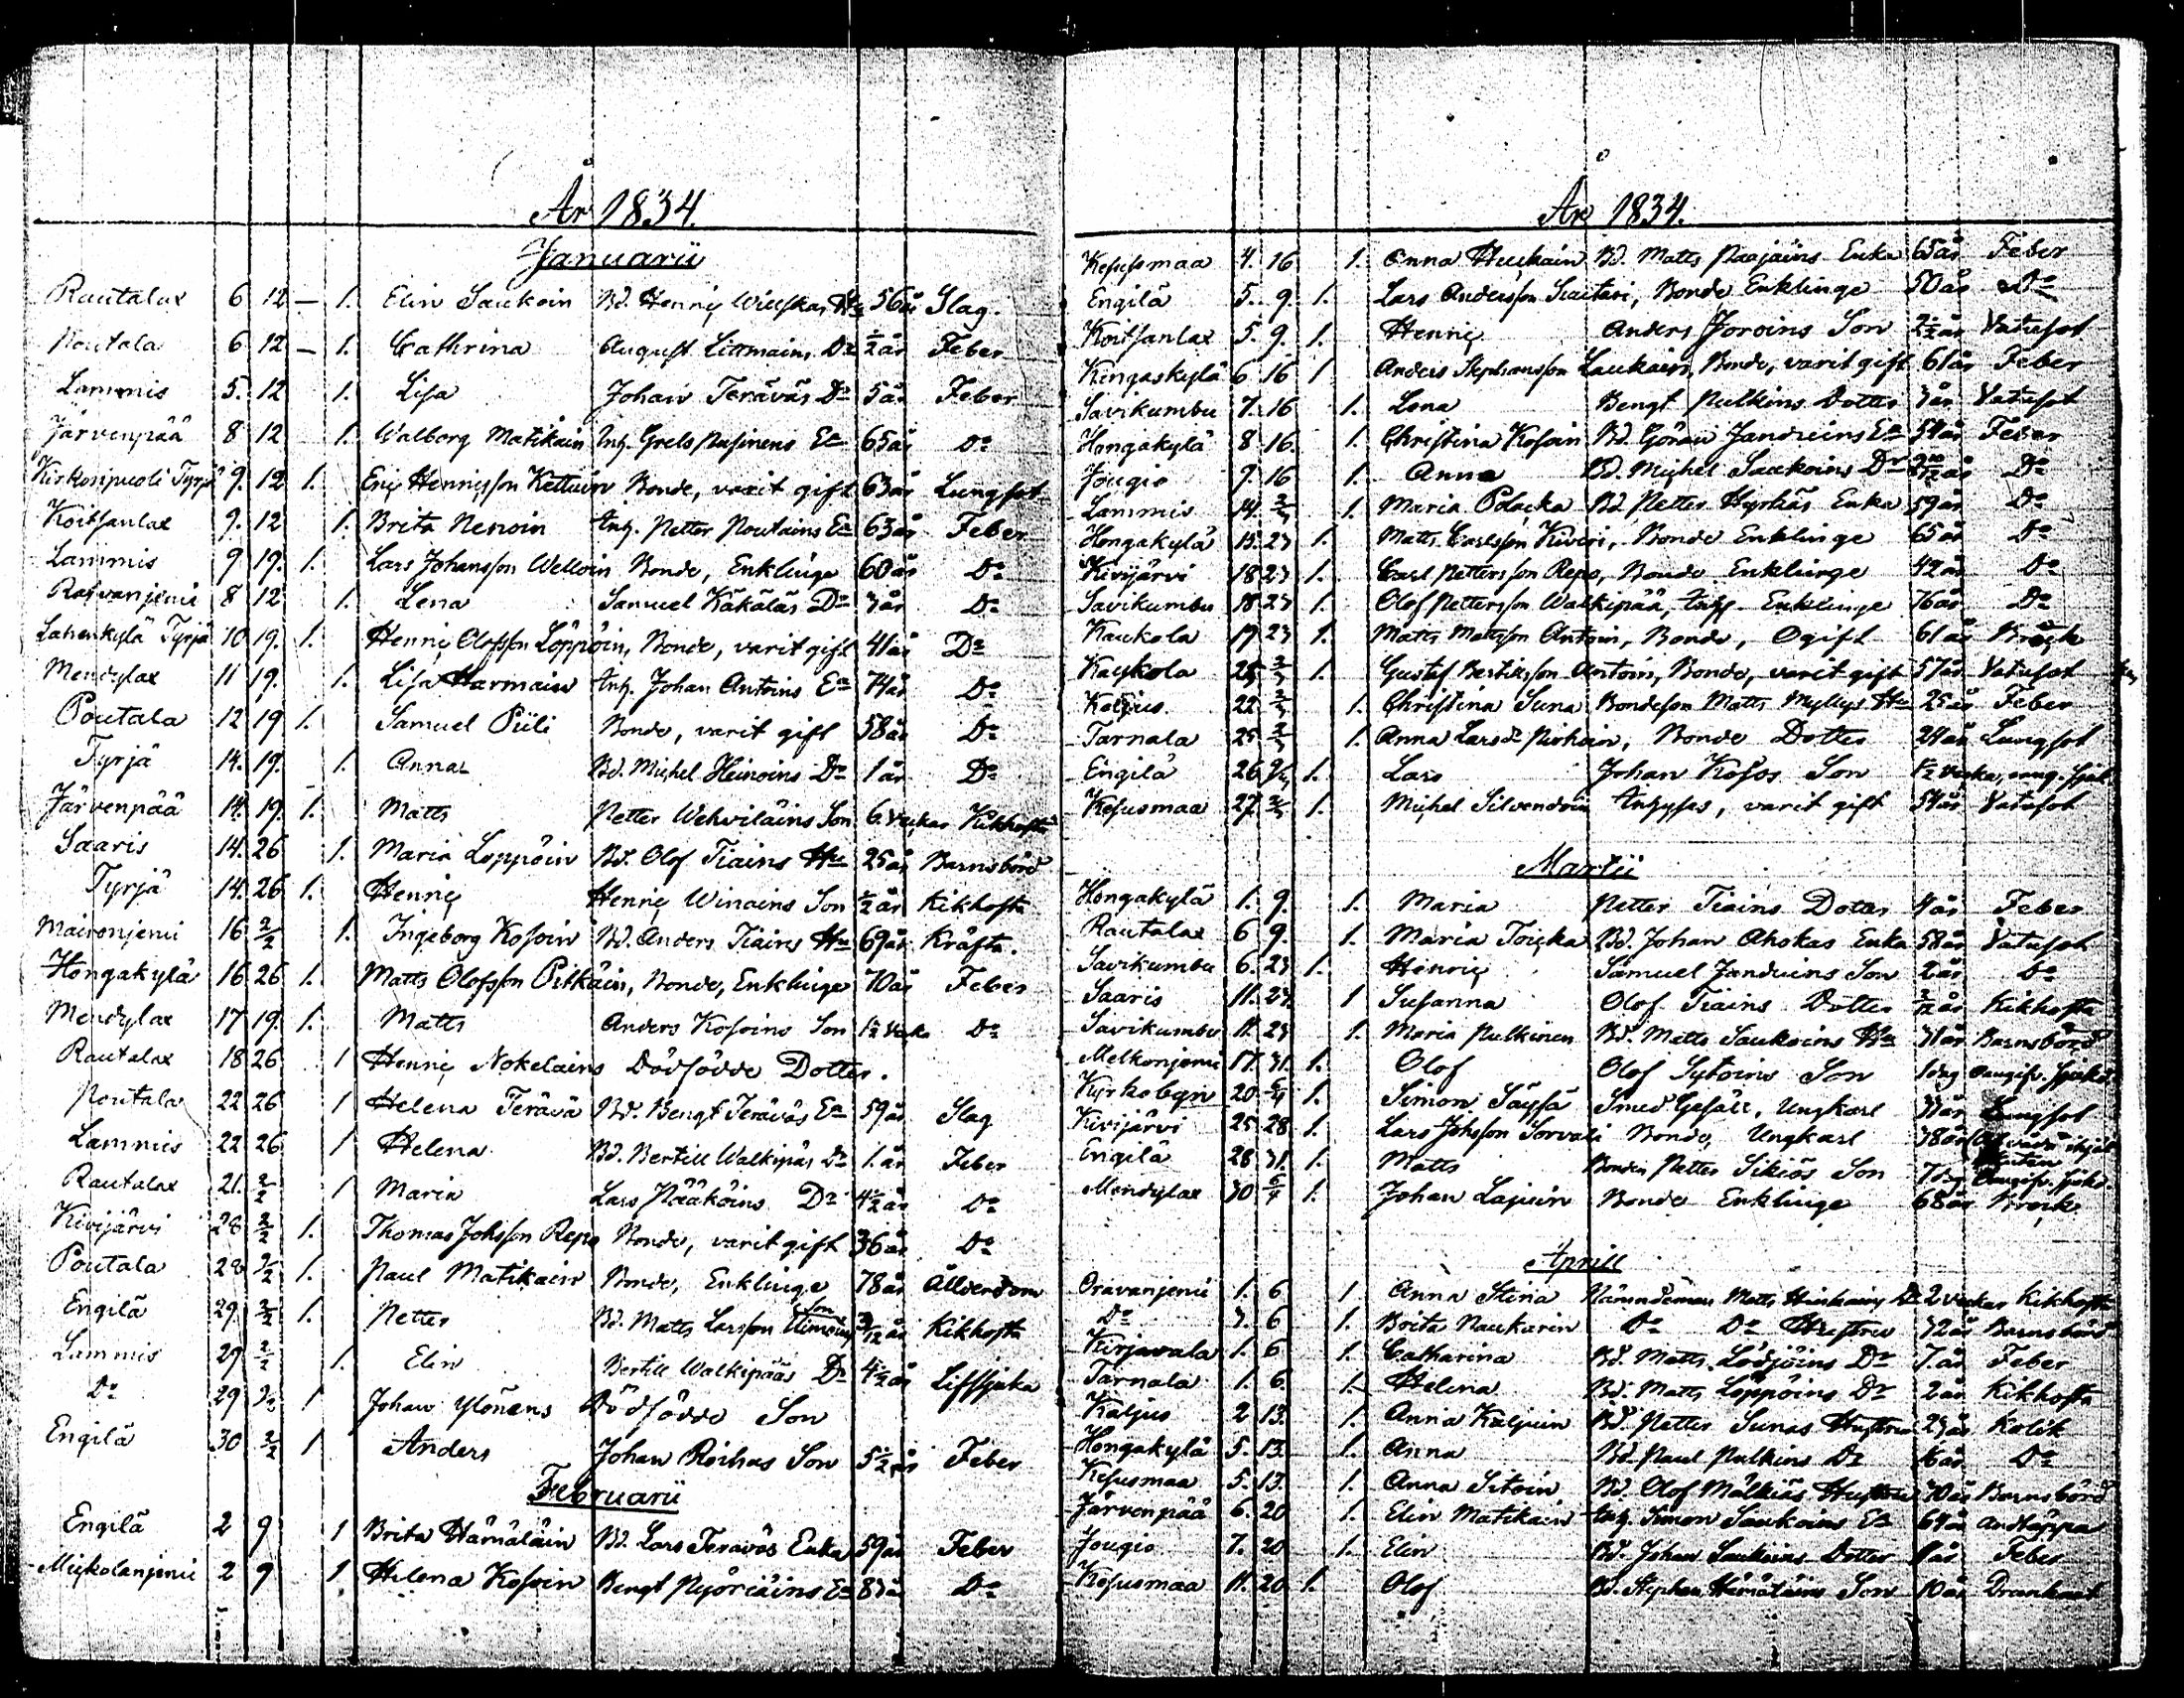 År 1834.
Januarii
Rautalax 6 12 — 1. Elin Saukoin Bd. Henric Hu 56 år Slag.
Poutala 6 12 — 1. Cathrina August Littmains Dr ½ år Feber
Lammis 5. 12 1. Lisa Johan Teräväs Dr 5 år Feber
Järvenpää 8 12 1. Walborg Matikain Inh. Grels Pusinens Ea 65 år Do
Kirkonpuoli Tyrjä 9. 12 1. Eric Henricsson Kettuin Bonde, varit gift 63 år Lungsot
Koitsanlax 9. 12 1. Brita Nenoin Inh. Petter Poutains Ea 63 år Feber
Lammis 9 19. 1. Lars Johansson Welloin Bonde, Enklinge 60 år Do
8 12 1. Lena Samuel Käkäläs Dr 3 år Do
Lahenkylä Tyrjä 10 19. 1. Henric Olofsson Löppöin, Bonde, varit gift 41 år Do
Mendylax 11 19. 1. Lisa Harmain Inh. Johan Antoins Ea 74 år Do
Poutala 12 19 1. Samuel Piili Bonde, varit gift 58 år Do
Tyrjä 14. 19. 1. Anna Bd. Michel Heinoins Dr 1 år Do
Järvenpää 14. 19. 1. Matts Petter Wehviläins Son 6 veckor Kikhosta
Saaris 14. 26 1. Maria Loppöin Bd. Olof Tiains Hu 25 år Barnsbörd
Tyrjä 14. 26 1. Henric Henric Winains Son ½ år Kikhosta
Maironjemi 16 2/2 1. Ingeborg Kosoin Bd. Anders Tiains Hu 69 år Kräfta.
Hongakylä 16 26 1. Matts Olofsson Pitkäin, Bonde, Enklinge 70 år Feber
Mendylax 17 19. 1. Matts Anders Kosoins Son 1½ veka Do
Rautalax 18 26 1 Henric Nokelains Dödfödde Dotter.
Poutala 22 26 1 Helena Terävä Bd. Bengt Teräväs Ea 59 år Slag
Lammis 22 26 1 Helena Bd. Bertill Walkipäs Dr 1. år Feber
Rautalax 21. 2/2 1 Maria Lars Pääköins Dr 4½ år Do
Kivijärvi 28 2/2 1. Thomas Johsson Repo Bonde, varit gift 36 år Do
Poutala 28 2/2 1. Paul Matikain Bonde, Enklinge 78 år Ålderdom
Engilä 29. 2/2 1. Petter Bd. Matts Larsson Son år Kikhosta
Lammis 29 2/2 1. Elin Bertill Walkipääs Dr 4½ år
Do 29 2/2 1 Johan Ylönens Dödfödde Son
Engilä 30 2/2 1 Anders Johan Roihas Son 5½ år Feber
Februarii
Engilä 2 9 1 Brita Hämäläin Bd. Lars Teräväs Enka 59 år Feber
Mickolanjemi 2 9 1 Helena Kosoin Bengt Ea 83 år Do
År 1834.
Kesusmaa 4. 16 1. Anna Huckain Bd. Matts Paajains Enka 65 år Feber
Engilä 5. 9. 1. Lars Andersson, Bonde Enklinge 50 år Do
Koitsanlax 5. 9. 1. Henric Anders Joroins Son 2½ år Vatusot
Kingaskylä 6 16 1 Anders Stephansson Laukain, Bonde, varit gift 61 år Feber
Savikumbu 7. 16 1. Lena Bengt Pulkins Dotter 3 år Vatusot
Hongakylä 8 16. 1. Christina Kosoin Bd. Göran Ea 54 år Feber
Jougio 9. 16 1. Anna Bd. Michel Saukoins Dr år Do
Lammis 14. 2/3 1. Maria Polacka Bd Petter Hyrkäs Enka 59 år Do
Hongakylä 15. 23 1. Matts Carlsson Kiveri, Bonde Enklinge 65 år Do
Kivijärvi 18 23 1. Carl Pettersson Repo, Bonde Enklinge 42 år Do
Savikumbu 18 23 1. Olof Pettersson Walkipää, Inh. Enklinge 76 år Do
Kaukola 19 23 1. Matts Mattsson Antoin, Bonde, Ogift 61 år Bråck
Kaukola 25 2/3 1. Gustaf Bertilsson Antoin, Bonde, varit gift 57 år Vatusot
Kaljus 22 2/3 1. Christina Suna Bondeson Matts Myllys Hu 25 år Feber
Tarnala 25 2/3 1. Anna Larsdr Pirhoin, Bonde Dotter 24 år Lungsot
Engilä 26 1. Lars Johan Kosos Son ½ vecka,
Kesusmaa 27 2/3 1. Michel Silvendoin Inhyses, varit gift 54 år Vatusot
Martii
Hongakylä 1. 9. 1. Maria Petter Tiains Dotter 4 år Feber
Rautalax 6 9. 1. Maria Toicka Bd. Johan Ahokas Enka 58 år Vatusot
Savikumbu 6. 23 1. Henric Samuel Son 2 år Do
Saaris 11. 23. 1 Susanna Olof Tiains Dotter år Kikhosta
Savikumbu 11. 23 1. Maria Pulkinen Bd. Matts Saukoins Hu 31 år Barnsbörd
Melkonjemi 17. 31. 1. Olof Olof Sytoins Son 1 dag
Kyrkobyn 20. 6/4 1. Simon Säyfä Smed Gesäll, Ungkarl 33 år Lungsot
Kivijärvi 25 28 1. Lars Johsson Sorvali Bonde, Ungkarl 38 år
Engilä 28 31. 1. Matts Bonden Petter Sikiös Son 7 dag
Mendylax 30 6/4 1. Johan Lajuin Bonde Enklinge 68 år Bråck
Aprill
Oravanjemi 1. 6 1 Anna Stina Nämndeman Matts Dr 2 veckor Kikhosta
Do 3. 6 1. Brita Naukarin Do Do Hustru 32 år Barnsbörd
Kirjavala 1. 6 1. Catharina Bd. Matts Lödjöins Dr 7 år Feber
Tarnala 1. 6. 1. Helena Bd. Matts Löppöins Dr 2 år Kikhosta
Kaljus 2 13. 1. Anna Kaljuin Bd. Petter Sunas Hustru 23 år Kolik
Hongakylä 5. 13. 1. Anna Bd. Paul Pulkins Dr 16 år Do
Kesusmaa 5. 13. 1. Anna Sitoin Bd. Olof Mälkiäs Hustru 30 år Barnsbörd
Järvenpää 6. 20 1. Elin Matikain Inh. Simon Saukoins Ea 64 år Andtäppa
Jougio 7. 20 1. Elin Bd. Johan Saukoins Dotter år Feber
Kesusmaa 11. 20 1. Olof Bd. Stephan Hämäläins Son 10 år Drunknat